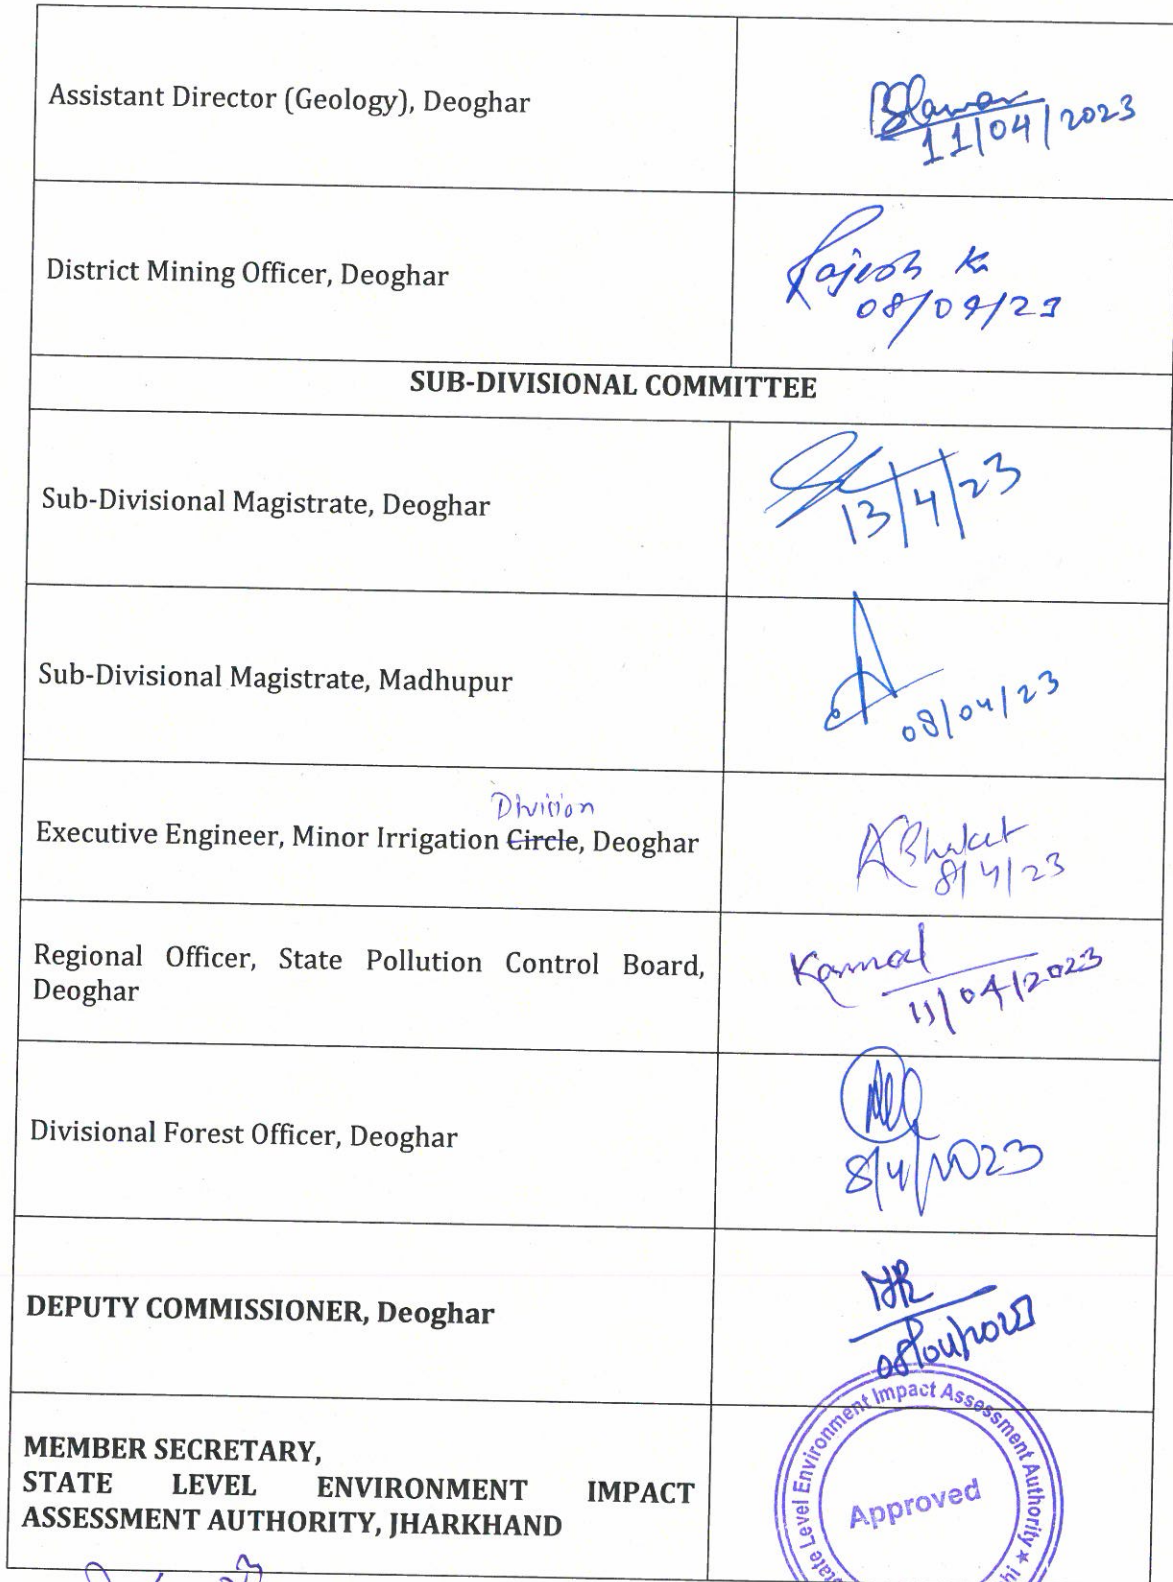 Assistant Director (Geology), Deoghar
11/04/2023
District Mining Officer, Deoghar
Rajesh K
08/04/23
SUB-DIVISIONAL COMMITTEE
Sub-Divisional Magistrate, Deoghar
13/4/23
Sub-Divisional Magistrate, Madhupur
08/04/23
Division
Executive Engineer, Minor Irrigation Circle, Deoghar
ABhakat
8/4/23
Regional Officer, State Pollution Control Board,
Deoghar
11/04/2023
Divisional Forest Officer, Deoghar
8/4/2023
DEPUTY COMMISSIONER, Deoghar
08/04/2023
MEMBER SECRETARY,
STATE LEVEL ENVIRONMENT IMPACT
ASSESSMENT AUTHORITY, JHARKHAND
State Level Environment Impact Assessment Authority ★
Approved